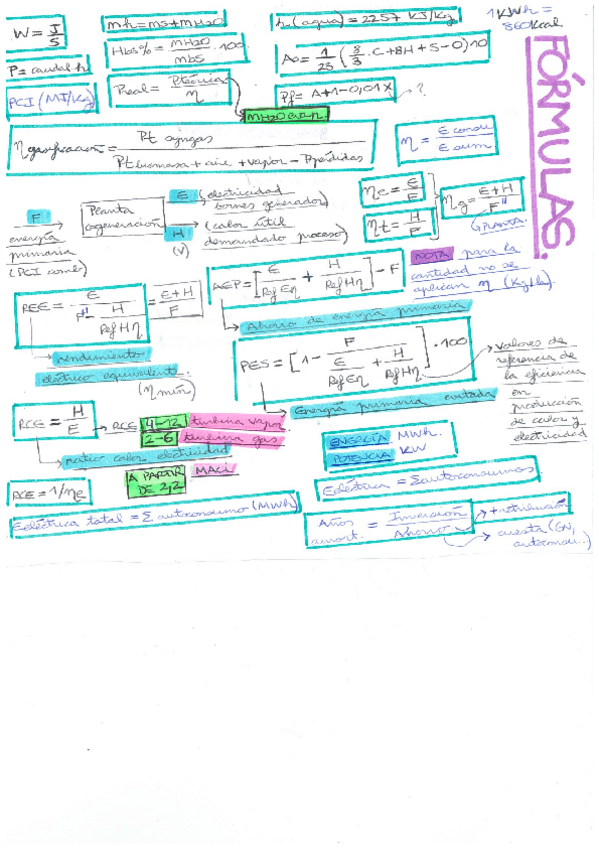 FÓRMULAS.
W = J/S
mh = ms + mH2O
h (agua) = 2257 KJ/Kg
1 KWh = 860 kcal
P = caudal · h
Hbs% = mH2O/mbs · 100
Ao = 1/23 (8/3 · C + 8H + S - O) 10
PCI (MJ/Kg)
Preal = Pteórica/η
Pf = A + 1 - 0,01X → ?
mH2O evap.
η gasificación = Pt syngas / Pt biomasa + aire + vapor - Ppérdidas
η = E consu / E sum
F energía primaria (PCI comb)
Planta cogeneración
E (electricidad bornes generador)
H (V) (calor útil demandado proceso)
ηe = E/F
ηt = H/F
ηg = E+H/F
PLANTA.
REE = E / F - H/Ref Hη = E+H/F
rendimiento eléctrico equivalente (η mín)
AEP = [E/Ref Eη + H/Ref Hη] - F
Ahorro de energía primaria
NOTA para la cantidad no se aplican η (Kg/h).
PES = [1 - F / E/Ref Eη + H/Ref Hη] · 100
valores de referencia de la eficiencia en producción de calor y electricidad
Energía primaria evitada
RCE = H/E → RCE 4-12 turbina vapor.
2-6 turbina gas
ratio calor electricidad
A PARTIR DE 2,2 MACI
RCE = 1/ηe
ENERGÍA MWh.
POTENCIA KW
Eeléctrica = Σautoconsumos.
Eeléctrica total = Σ autoconsumo (MWh)
Años amort. = Inversión/Ahorro
+ retribución
cuesta (GN, autoconsu..)